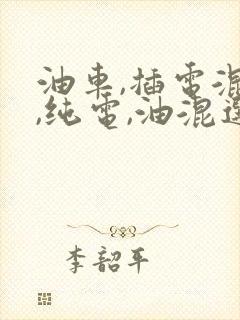 油車,插電混
,純電,油混選
李韶平